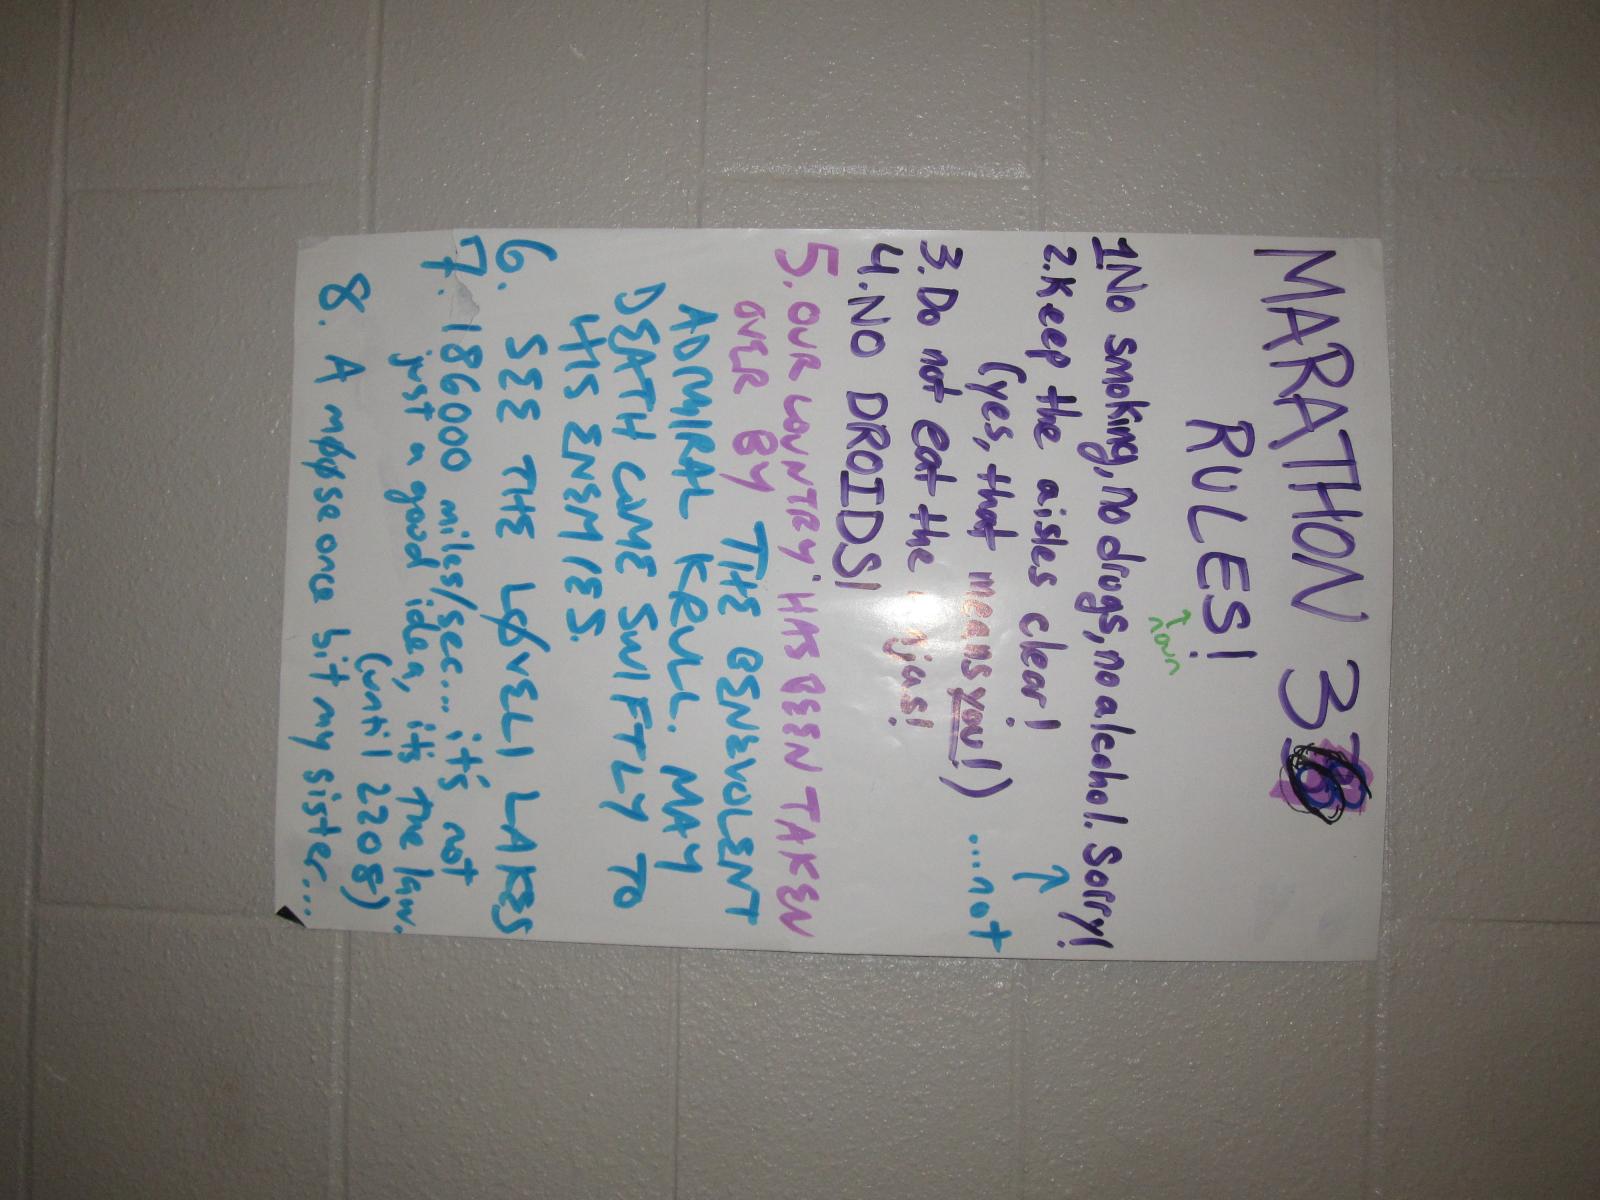 MARATHON 38
RULES!
noun
1 No smoking, no drugs, no alecohol. Sorry!
2. Keep the aisles clear!
(yes, that means you!) ...not
3. Do not eat the
4. NO DROIDS!
5. OUR COUNTRY HAS BEEN TAKEN
OVER BY THE BENEVOLENT
ADMIRAL KRELL. MAY
DEATH COME SWIFTLY TO
HIS ENEMIES.
6. SEE THE LØVELI LAKES
7. 186000 miles/sec... it's not
just a good idea, it's the law.
(until 2208)
8. A møøse once bit my sister...